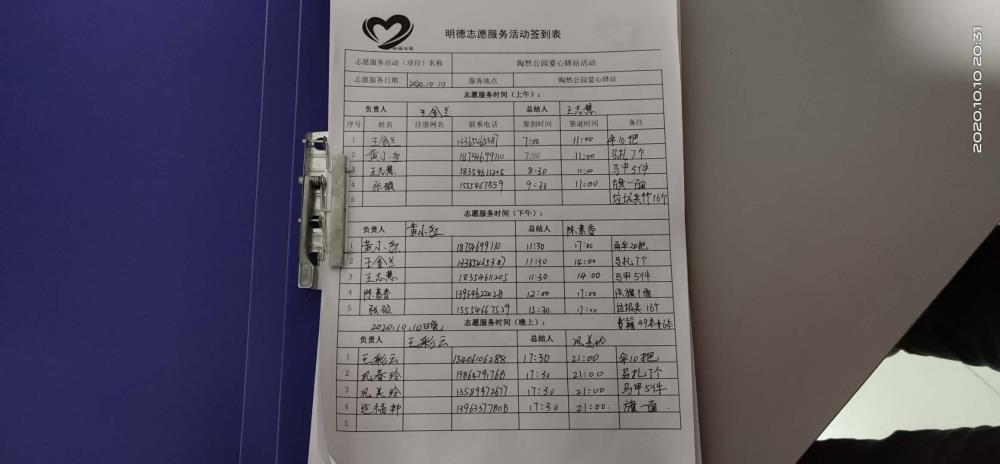 明德志愿服务活动签到表
志愿服务活动（项目）名称 陶然公园爱心驿站活动
志愿服务日期 2020.10.10 服务地点 陶然公园爱心驿站
志愿服务时间（上午）：
负责人 王金兰 总结人 王志慧
序号 姓名 注册网名 联系电话 签到时间 签退时间 备注
1 王金兰 7:00 11:00 伞10把
2 黄小红 18754699110 7:00 11:00 马扎7个
3 王志慧 18354611205 8:30 11:00 马甲5件
4 张璇 9:30 11:00 旗一面
5 垃圾夹 16个
志愿服务时间（下午）：
负责人 黄小红 总结人 陈素香
1 黄小红 18754699110 11:30 17:00
2 王金兰 11:30 14:00 马扎7个
3 王志慧 18354611205 11:30 14:00 马甲5件
4 陈素香 13954622028 12:00 17:00 旗1面
5 张璇 17:00 垃圾夹 16个
2020.10.10日 志愿服务时间（晚上）：
负责人 王彩云 总结人 巩美玲
1 王彩云 13406106288 17:30 21:00 伞10把
2 巩春玲 17:30 21:00 马扎7个
3 巩美玲 13589472677 17:30 21:00 马甲5件
4 17:30 21:00. 旗一面.
5
2020.10.10 20:31